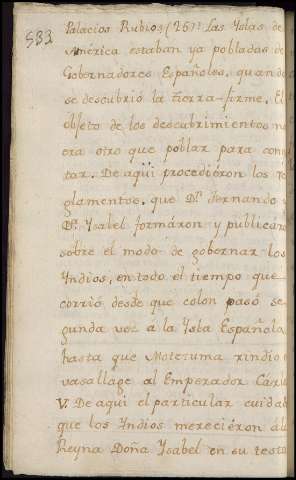 533
Palacios Rubios (26)? Las Yslas de
América estaban ya pobladas de
Gobernadores Españoles, quando
se descubrió la tierra-firme. El
objeto de los descubrimientos n
era otro que poblar para con
tar. De aquí procediéron los re
glamentos, que Dn. Fernando y
Da. Ysabel formáron y publicáro
sobre el modo de gobernar los
Yndios, en todo el tiempo que
corrió desde que colon pasó se
gunda vez á la Ysla Española,
hasta que Motezuma rindió
vasallage al Emperador Cárl
V. De aqui el particular cuidad
que los Yndios mereciéron á l
Reyna Doña Ysabel en su testa